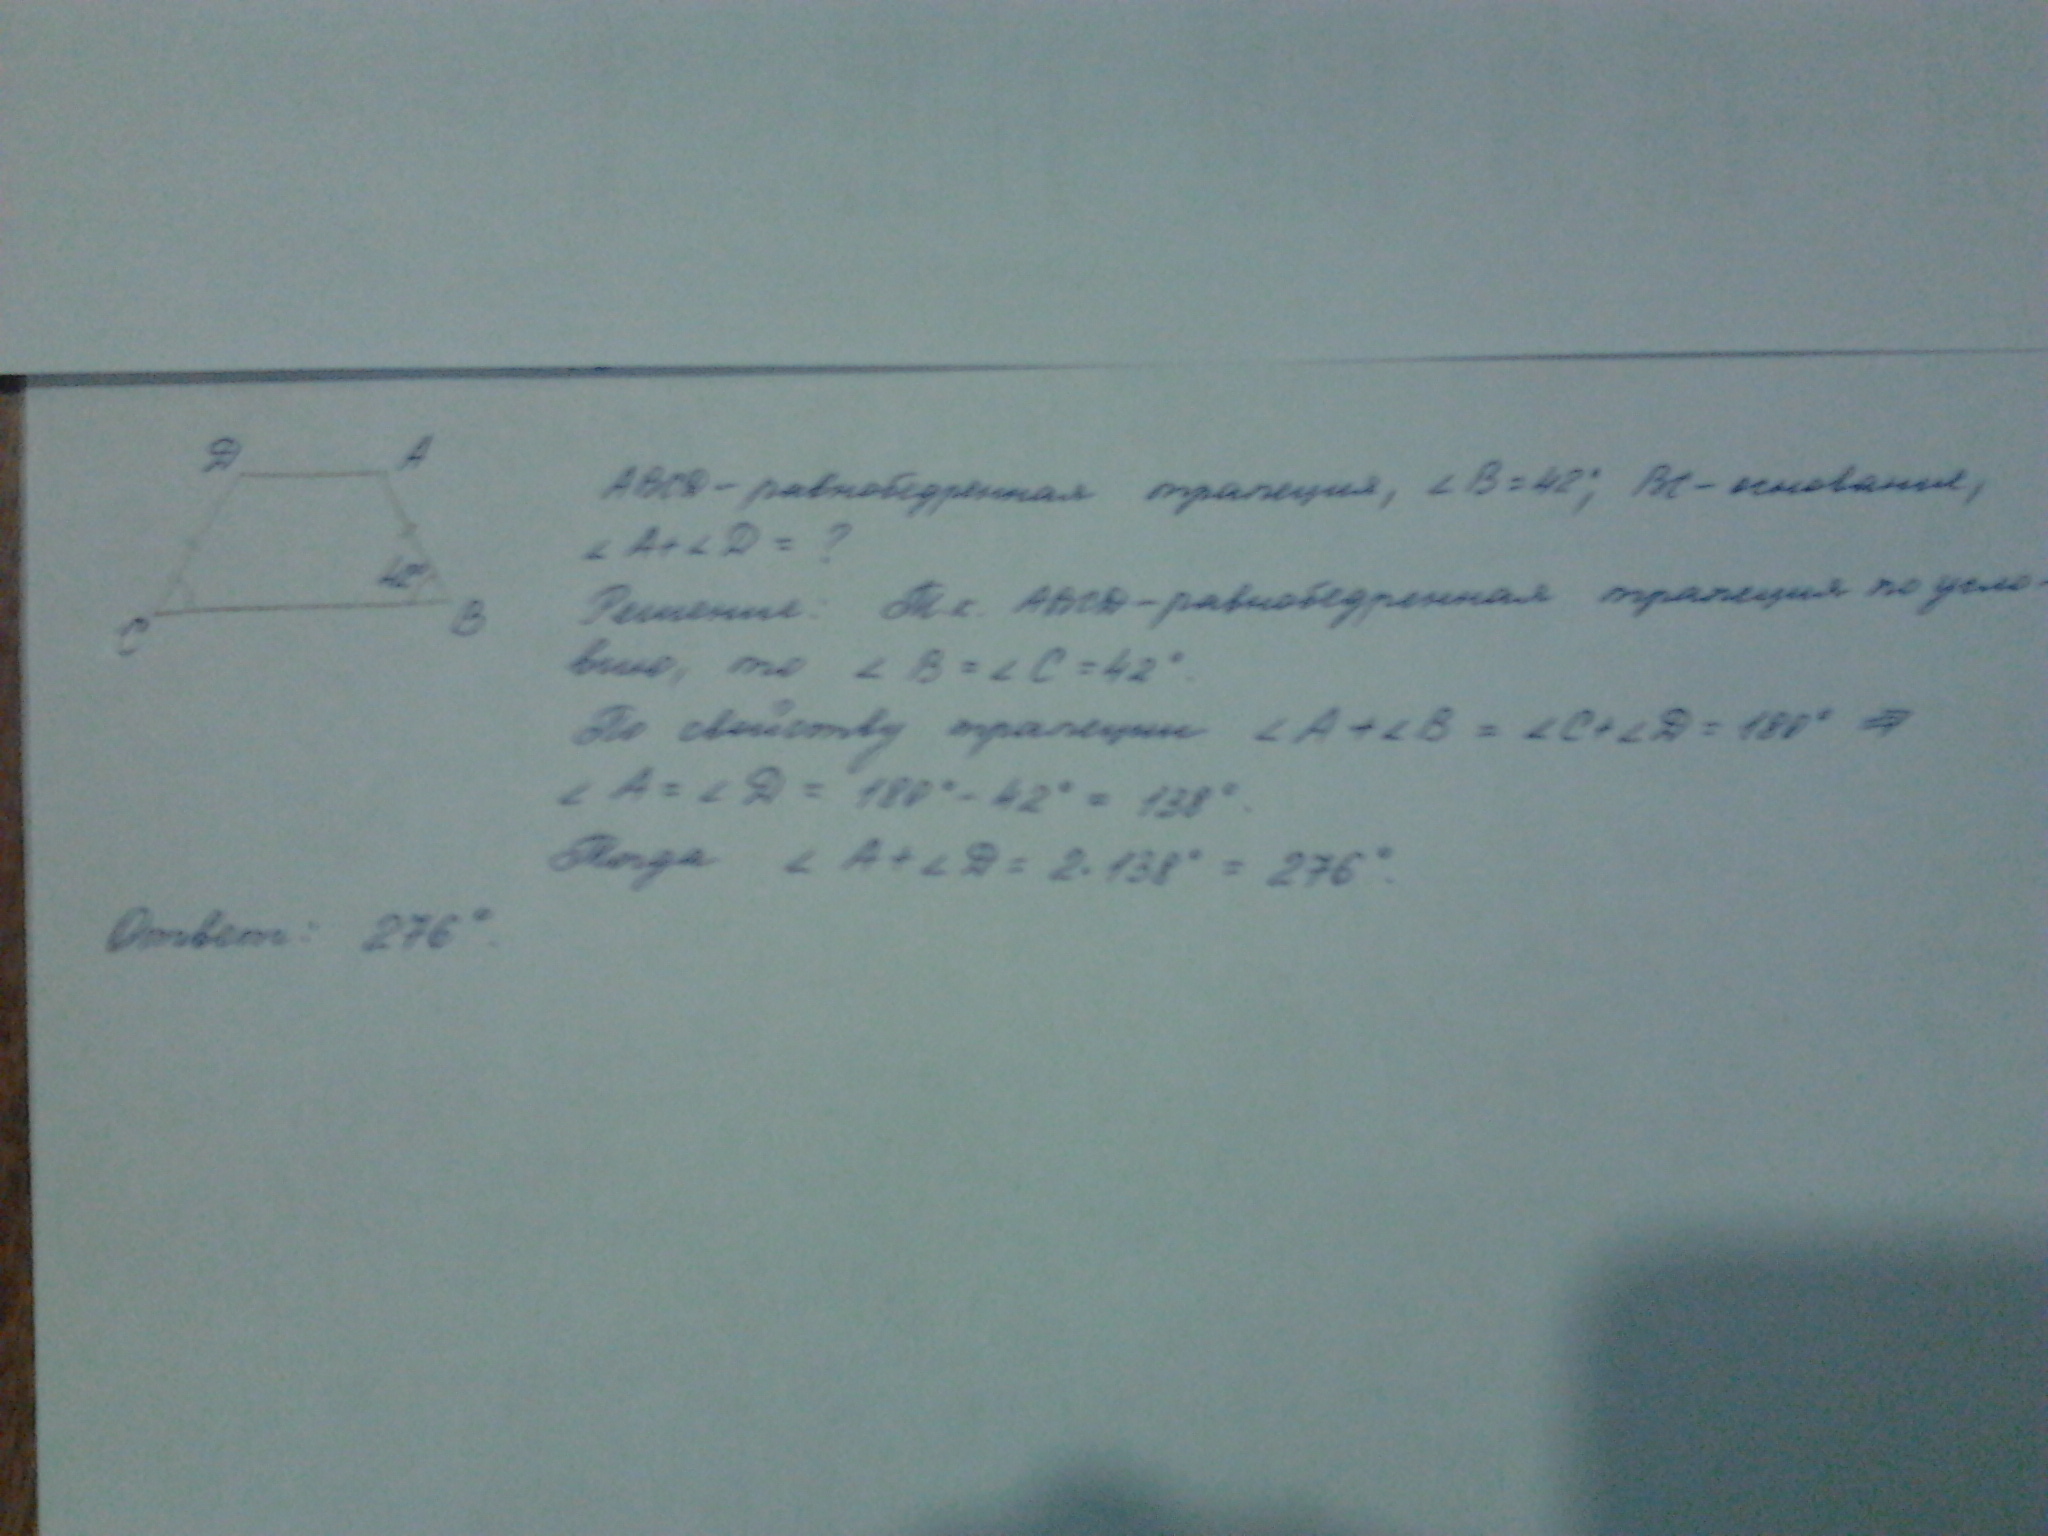 D A
ABCD - равнобедренная трапеция, ∠B = 42°, BC - основание,
∠A + ∠D = ?
42°
C B
Решение: Т.к. ABCD - равнобедренная трапеция по усло-
вию, то ∠B = ∠C = 42°.
По свойству трапеции ∠A + ∠B = ∠C + ∠D = 180° ⇒
∠A = ∠D = 180° - 42° = 138°.
Тогда ∠A + ∠D = 2 · 138° = 276°.
Ответ: 276°.